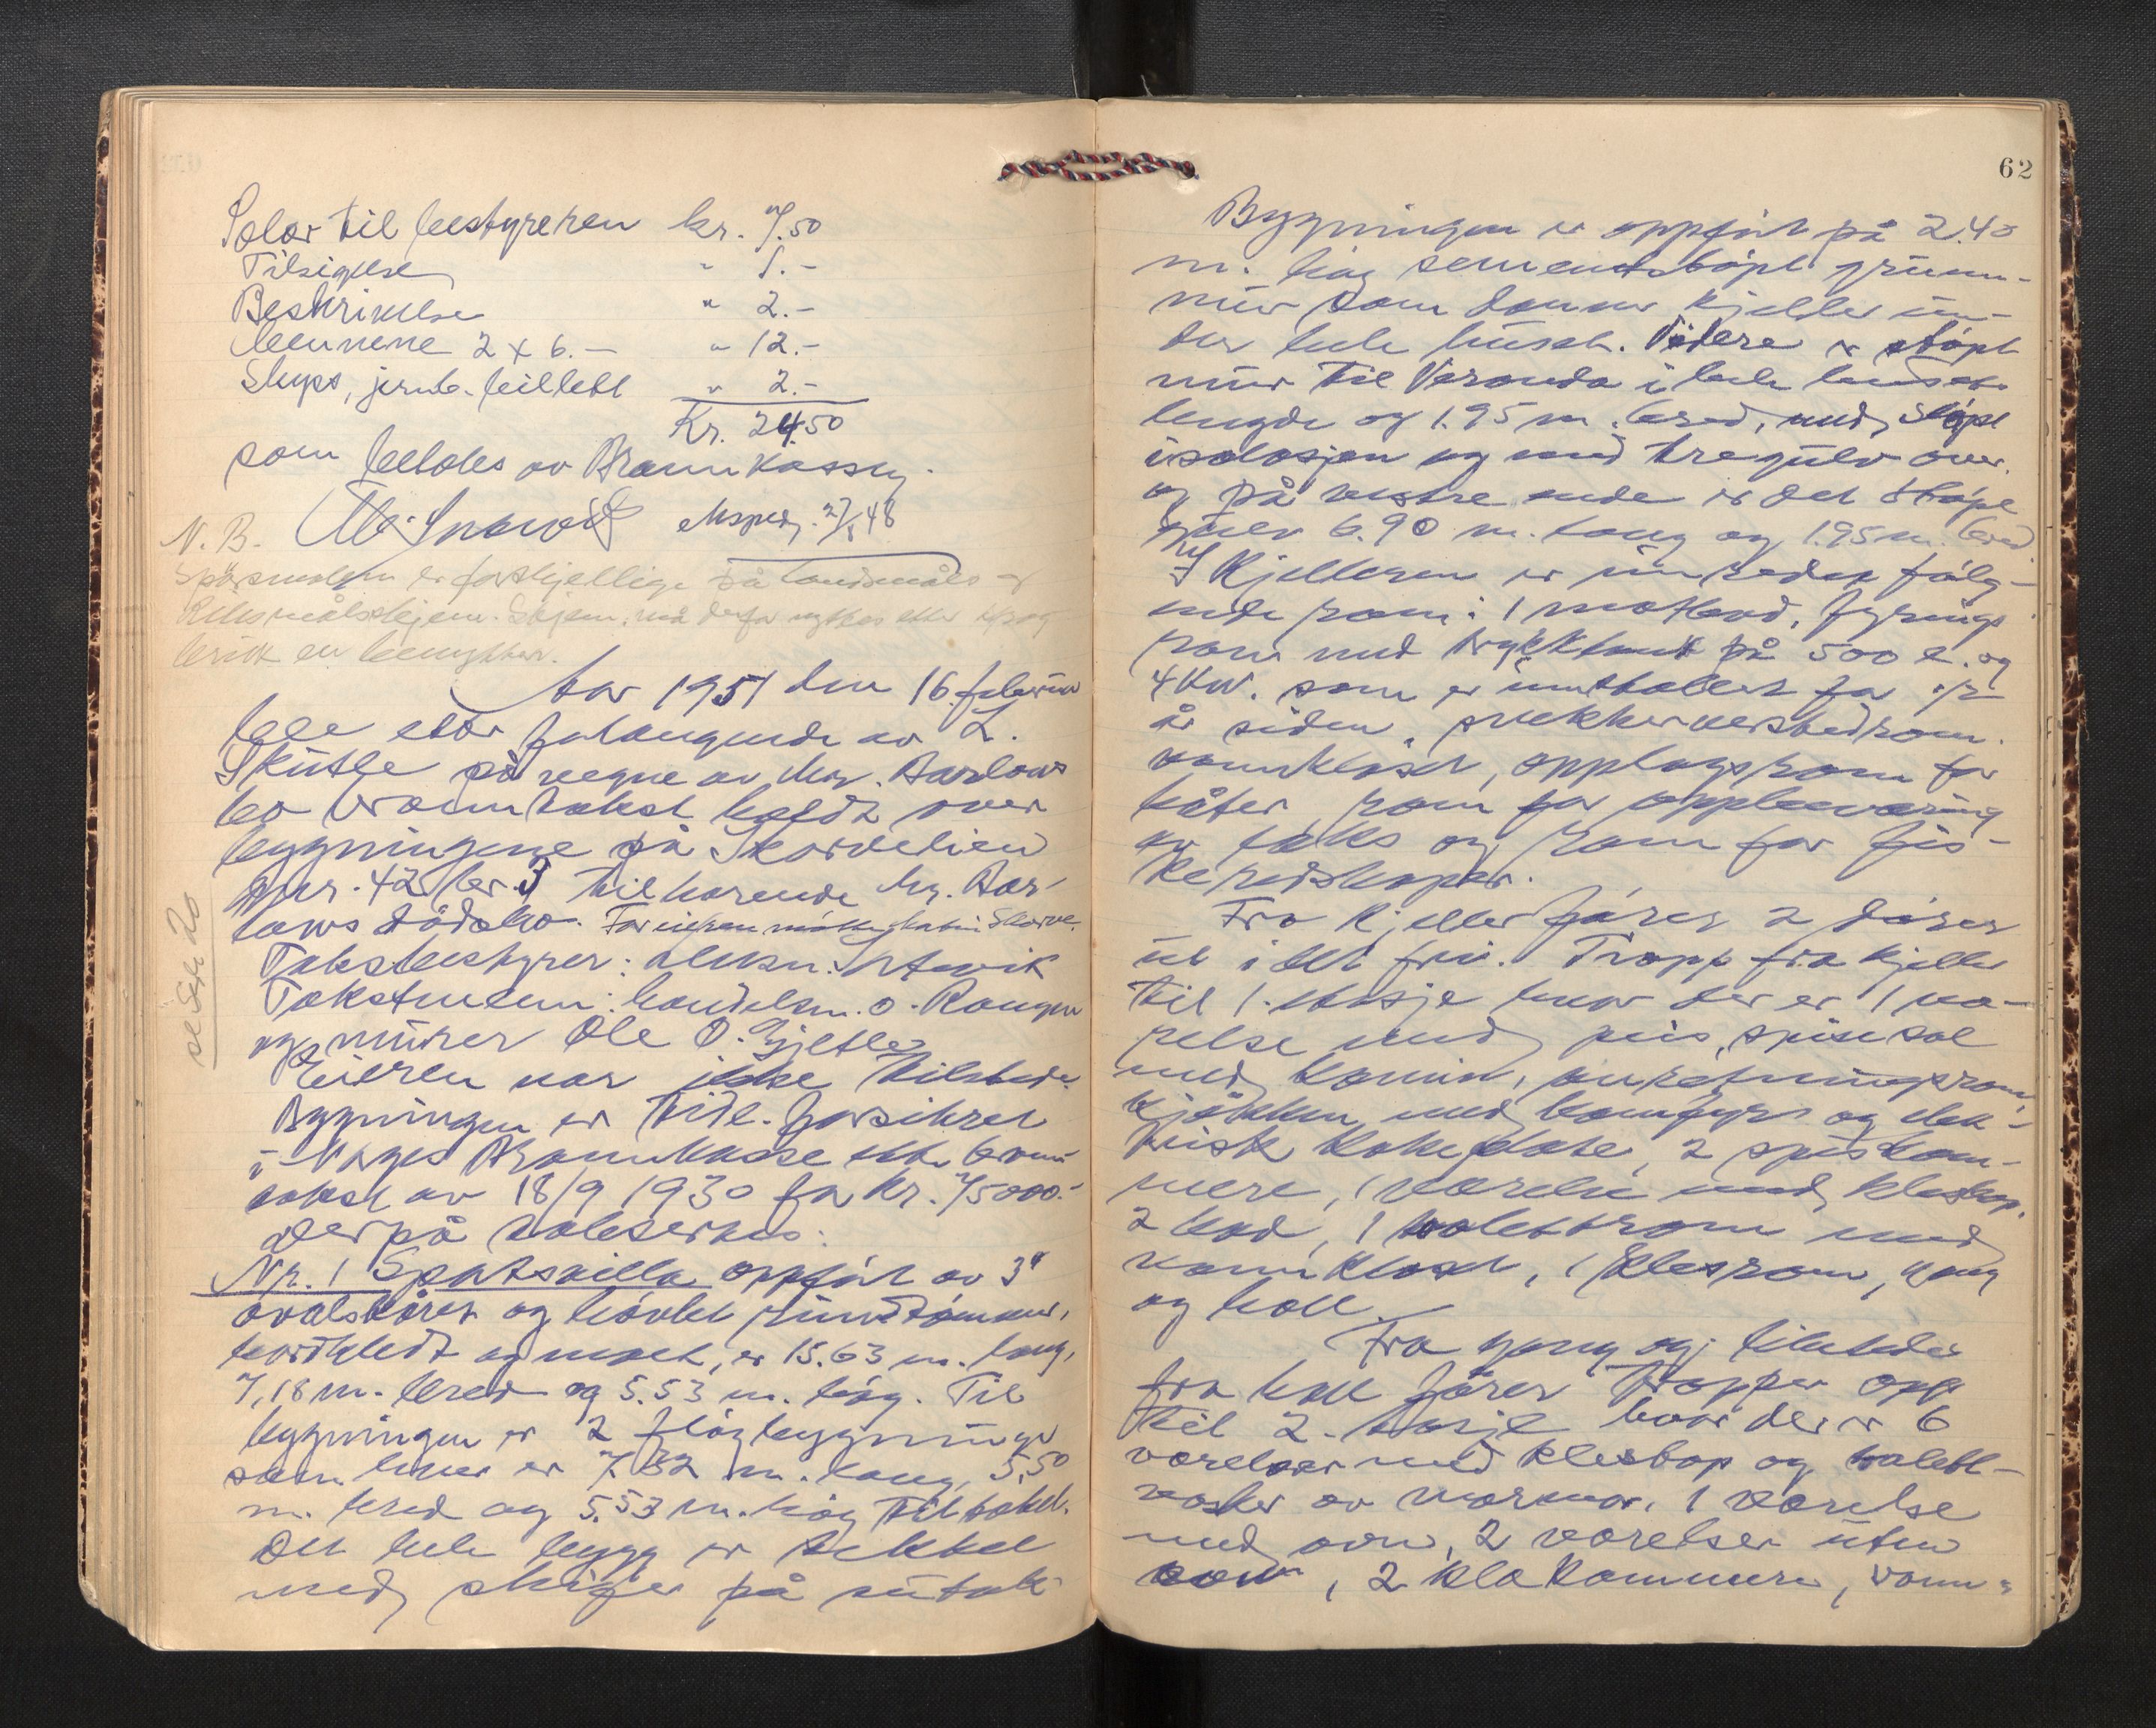 Salær til bestyreren kr. 7.50
Tilsigelse " 1.-
Beskrivelse " 2.-
Mennene 2 x 6.- " 12.-
Skyss, jernb. billett " 2.-
Kr. 24.50
som betales av Brannkassen.
eksped. 27/ 48
N. B.
Spörsmålene er forskjellige på landsmåls og
Riksmålskjema. Skjema må derfor nyttes etter sprog
bruk en benytter.
Aar 1951 den 16. februar
ble etter forlangende av L.
Skutle på vegne av Mr. Barlows
bo branntakst holdt over
bygningene på Skorvelien
gnr. 42 br. 3 tilhorende Mr. Bar-
lows dödsbo. For eieren mötte
se side 20
Takstbestyrer: lensm.
Takstmenn: handelsm. O. Rongen
og murer Ole O. Gjelle
Eieren var ikke tilstede.
Bygningen er tidl. forsikret
i Norges Brannkasse etter brann
takst av 18/9 1930 for kr. 75000.-
Derpå takseres:
Nr. 1 Sportsvilla oppfört av 3"
ovalskåren og hövlet rundtömmer,
bordkledt og malt, er 15.63 m. lang,
7,18 m. bred og 5.53 m. hög. Til
bygningen er 2 flöybygninger
som hver er 7.32 m. lang, 5,50
m. bred og 5.53 m. hög til taket.
Det hele bygg er tekket
med skifer på sutak
62
Bygningen er oppfört på 2.40
m. hög sementstöpt grunn-
mur som danner kjeller un-
der hele huset. Videre er stöpt
mur til Veranda i hele husets
lengde og 1.95 m. bred, med stöpt
isolasjon og med tregulv over.
og på vestre ende er det stöpt
gulv 6.90 m. lang og 1.95 m. bred.
I Kjelleren er innredet fölg-
ende rom: 1 matbod, fyrings
rom med trykktank på 500 l. og
4 Kw. som er innstallert for 1/2
år siden, snekkerverkstedrom.
vannklosett, opplagsrom for
båter, rom for oppbevaring
av laks og rom for fis-
keredskaper.
Fra kjeller förer 2 dörer
ut i det fri. Trapp fra kjeller
til 1. etasje hvor der er 1 væ-
relse med peis, spisesal
med kamin, anretningsrom,
kjökken med komfyr og elek-
trisk kokeplate, 2 spiskam-
mere, 1 værelse med klesskap,
2 bad, 1 toalettrom med
vannklosett, 1 klesrom, gang
og hall.
Fra gang og likeledes
fra hall förer trapper opp
til 2. etasje hvor der er 6
værelser med klesskap og toalett-
vasker av marmor, 1 værelse
med ovn, 2 værelser uten
ovn, 2 klekammere, vann-